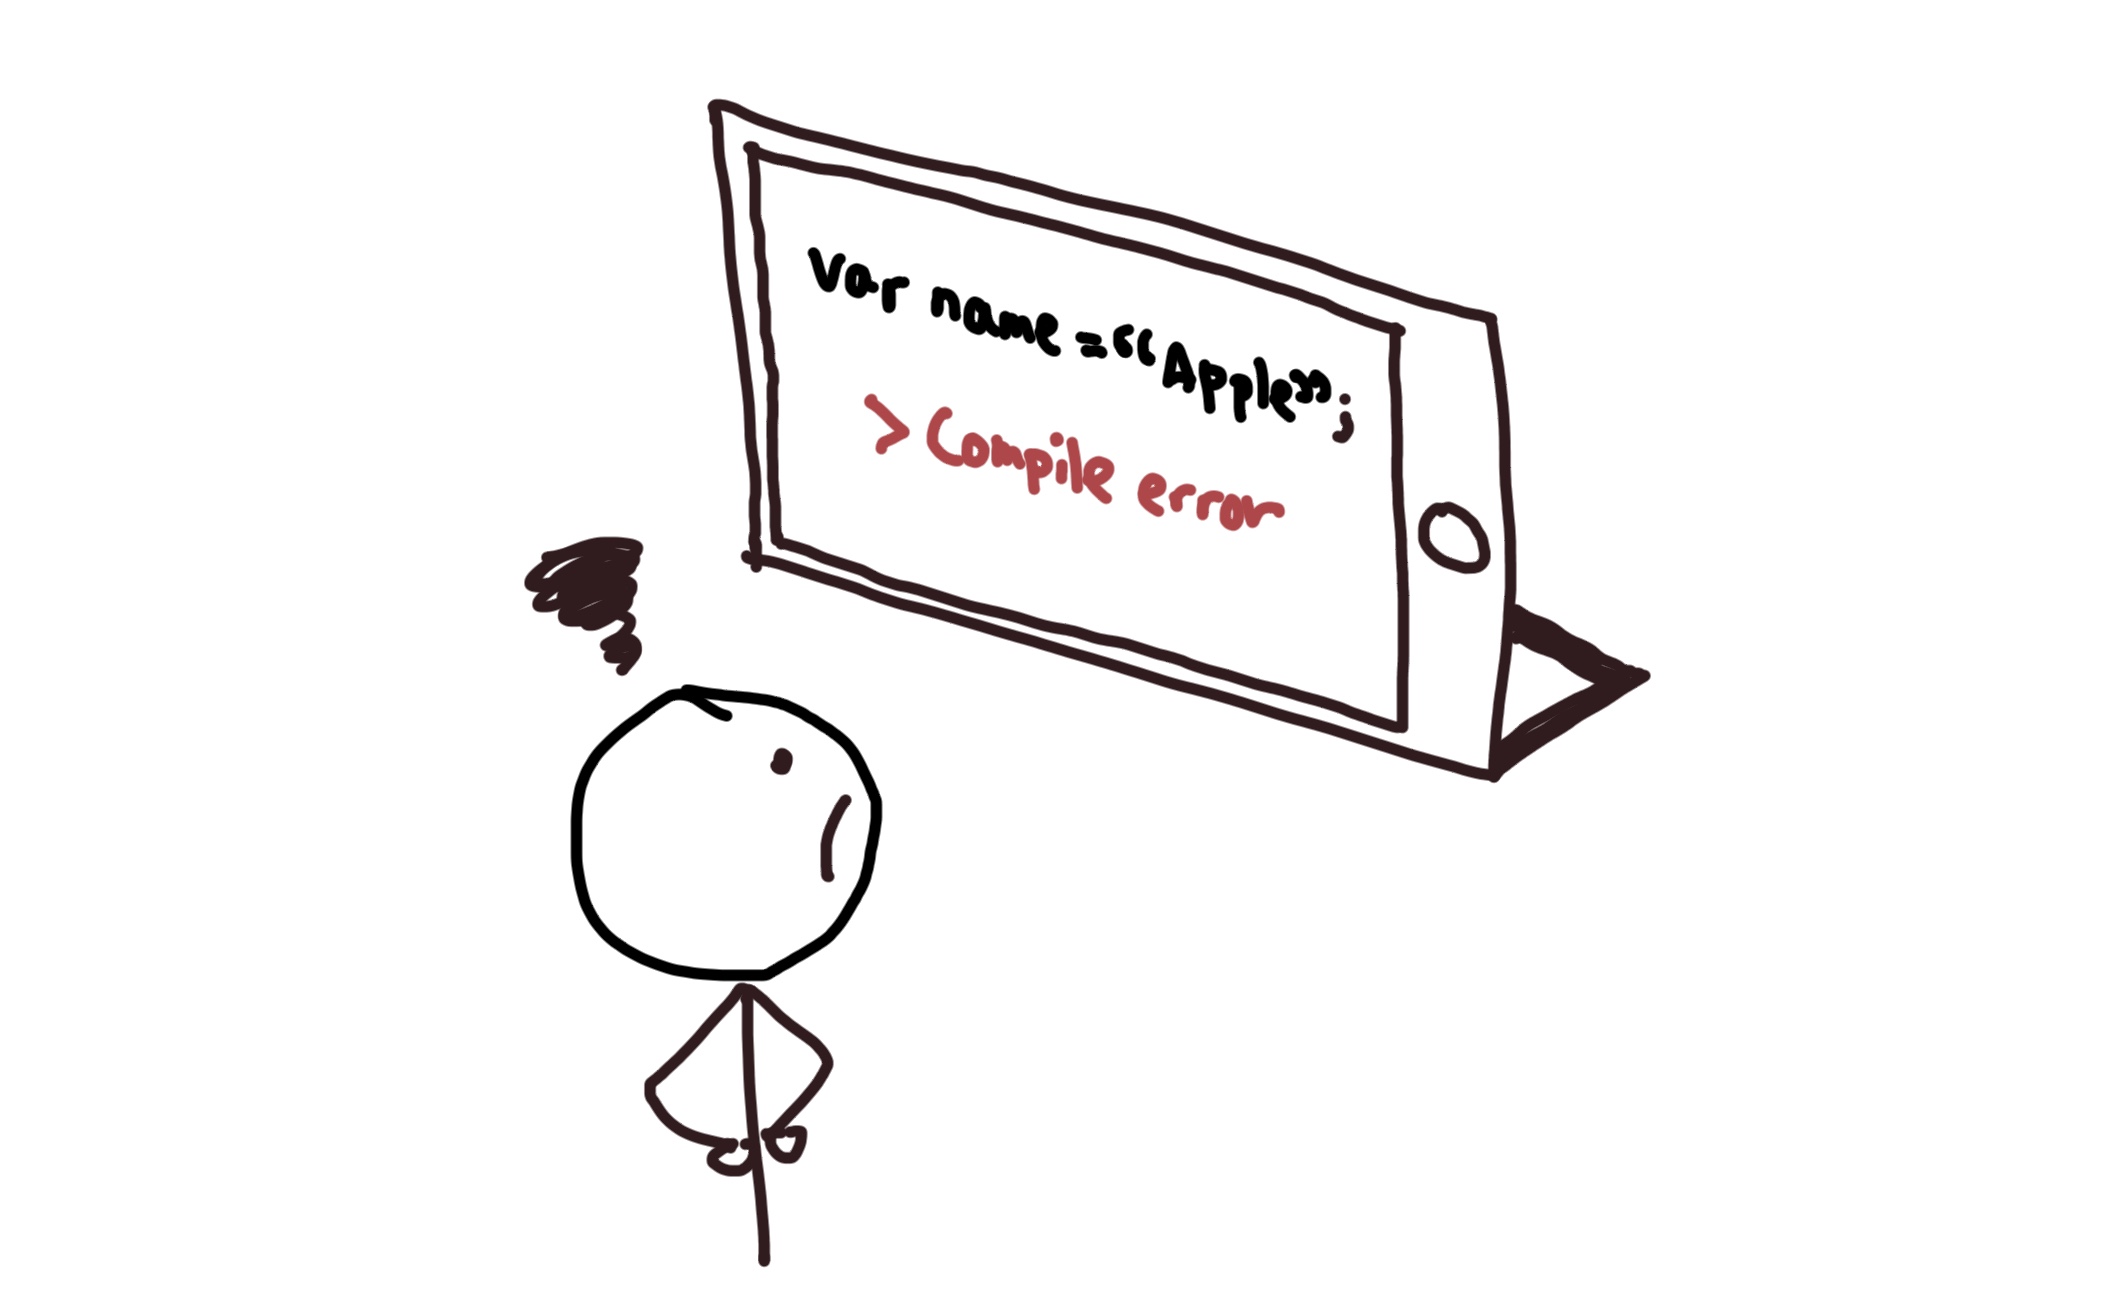 var name = “Apple”;
> Compile error